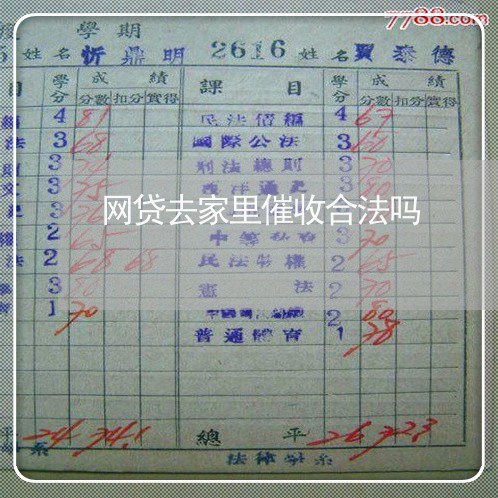 7788.com
學期
姓名 忻鼎明 2616 姓名 賈泰德
目 學分 成績 課目 學分 成績
分數 扣分 實得 分數 扣分 實得
4 81 民法債編 4 67
法 3 68 國際公法 3 60
3 刑法總則 3 70
3 75 西洋通史 3 80
网贷去家里催收合法吗
2 65 3 70
法 2 68 68 民法物權 2 65
3 80 憲法 2 70
1 70 2 80
普通體育 1 78
平 24 74.1 總平 26 72.3
系 法律學系